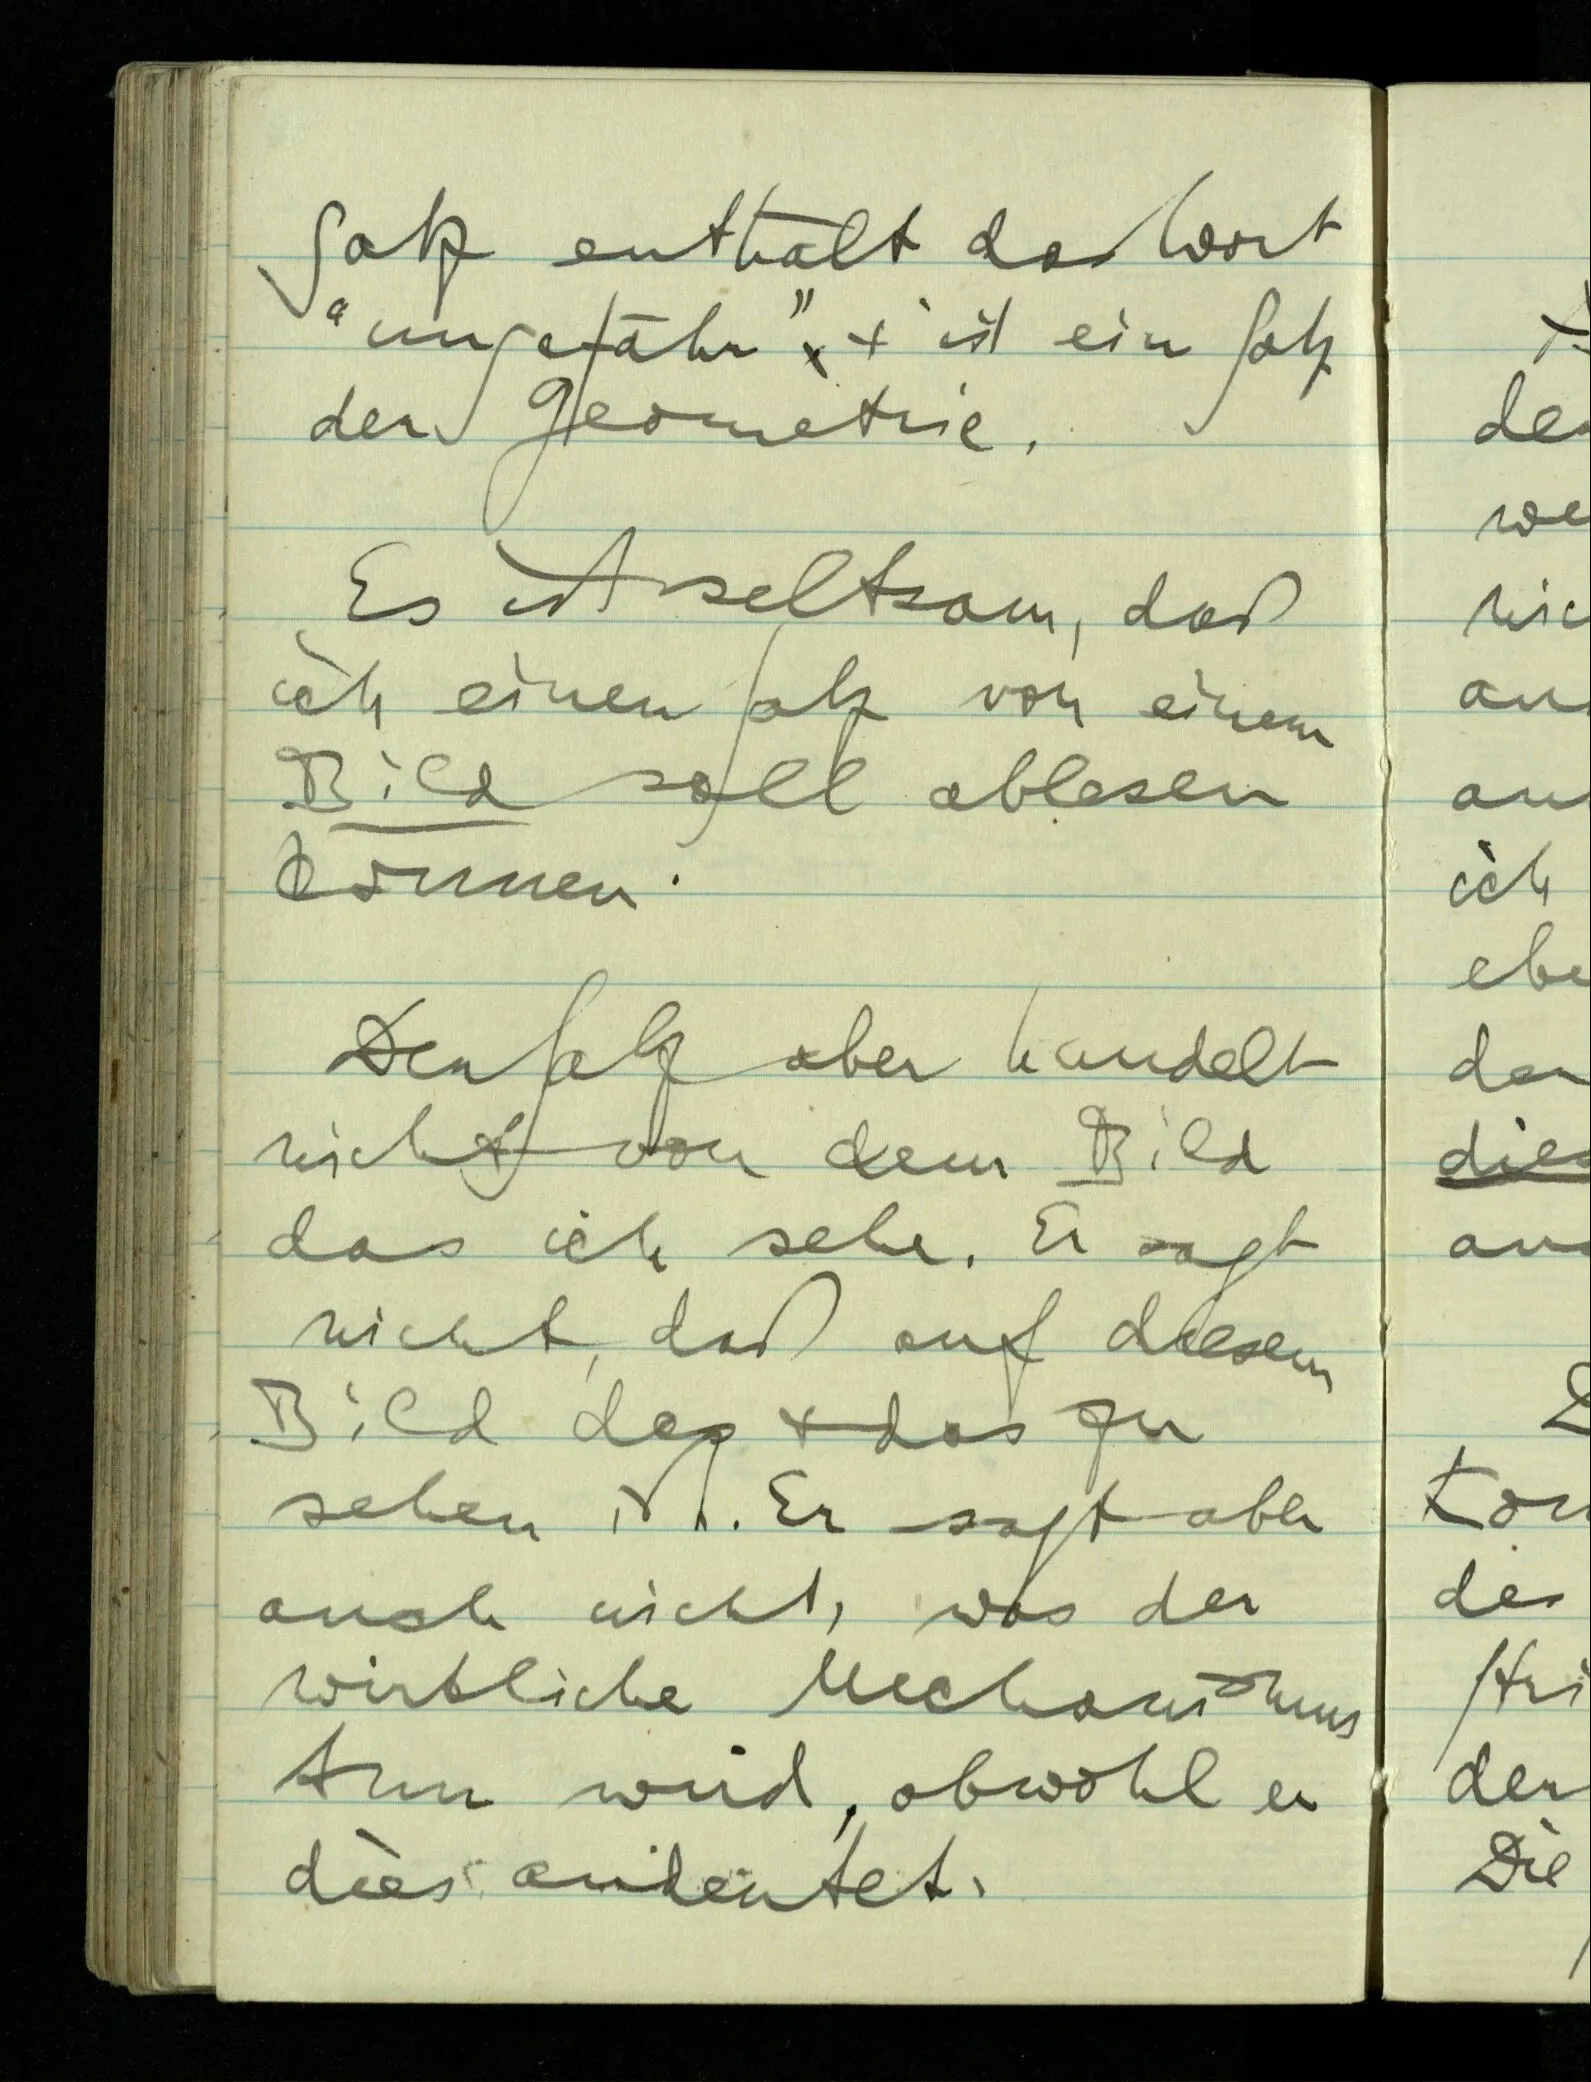 Satz enthält das Wort
"ungefähr" + ist ein Satz
der Geometrie.
Es ist seltsam, daß
ich einen Satz von einem
Bild soll ablesen
können.
Der Satz aber handelt
nicht von dem Bild
das ich sehe. Er sagt
nicht, daß auf diesem
Bild das + das zu
sehen ist. Er sagt aber
auch nicht, was der
wirkliche Mechanismus
tun wird, obwohl er
dies andeutet.
de
we
nic
an
an
ich
ebe
der
dies
an
D
kön
des
der
Die